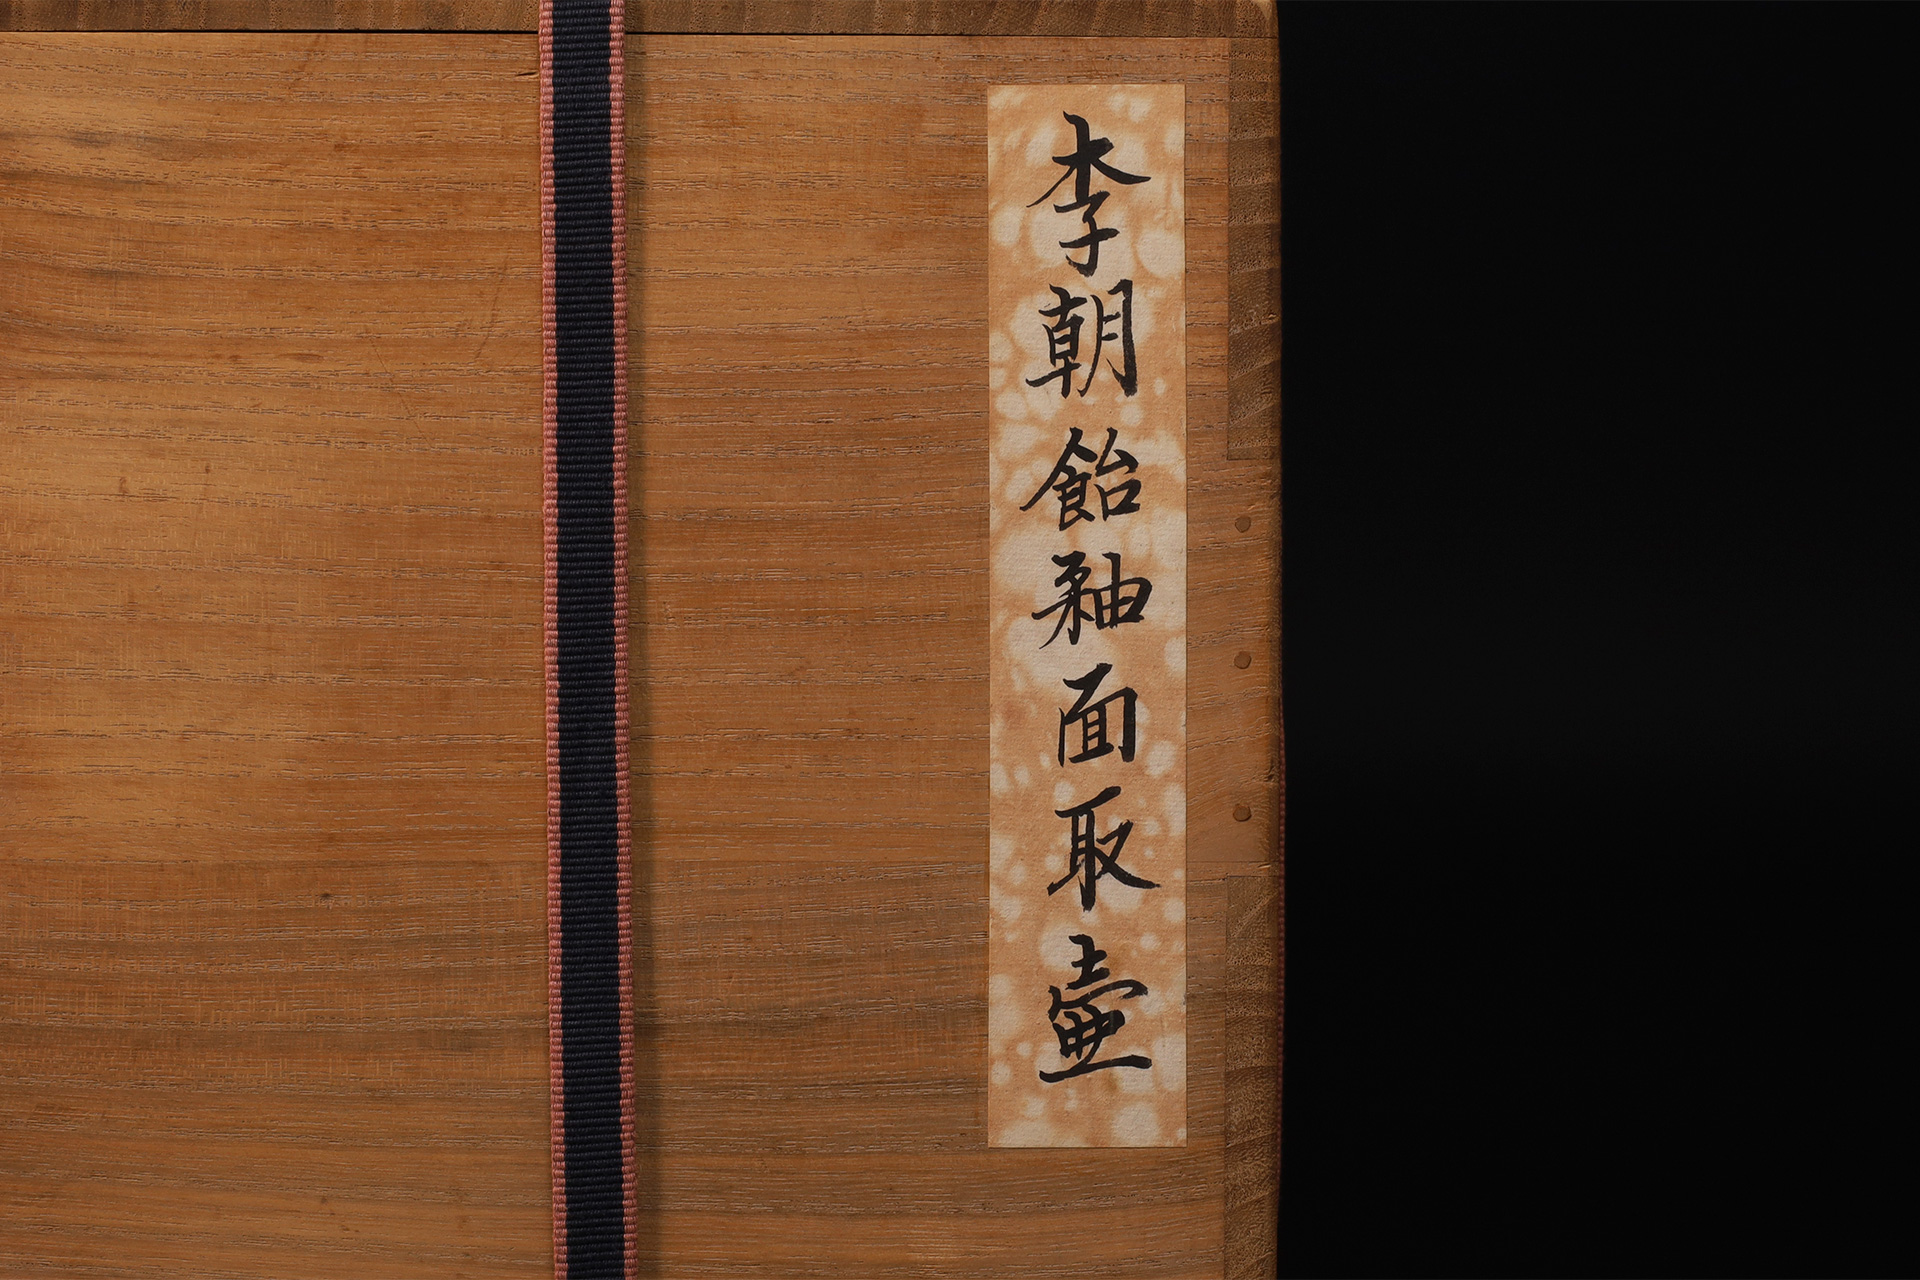 李朝飴釉面取壷